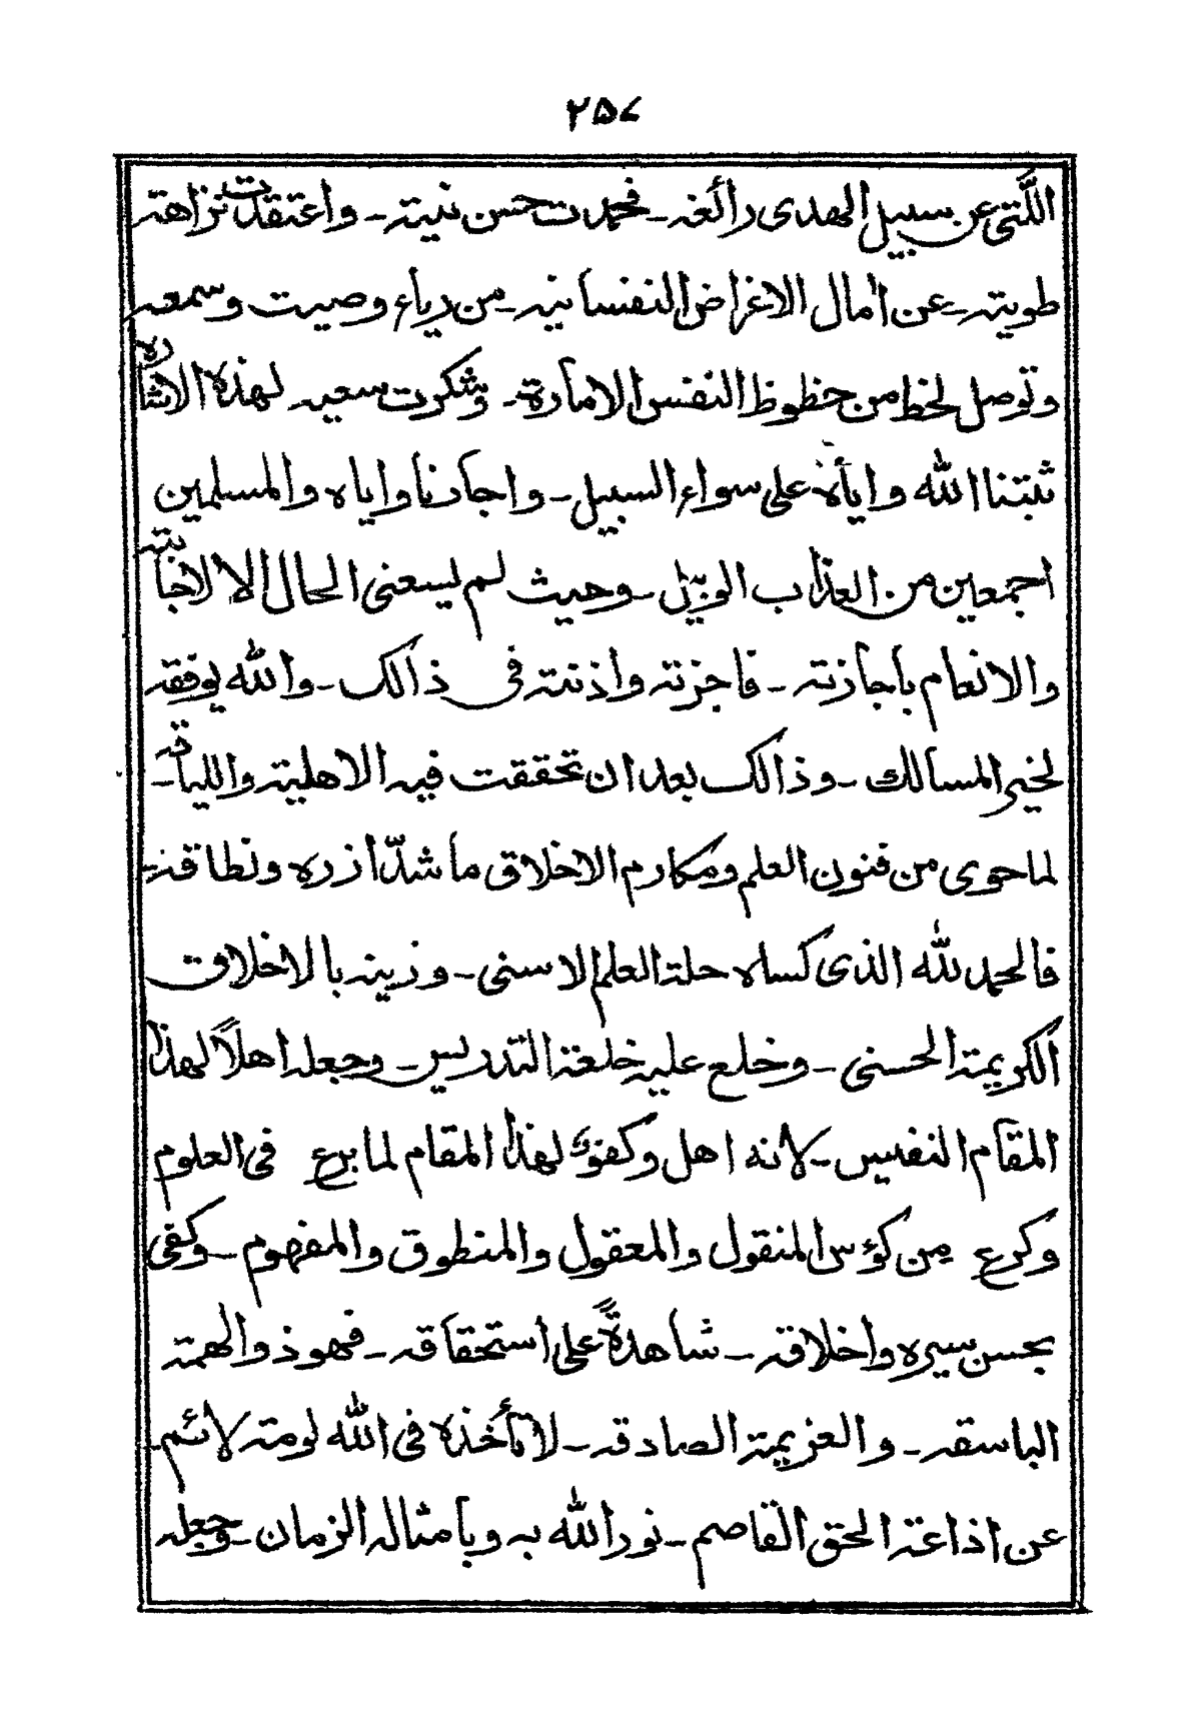 ۲۵۷
اللتی عن سبیل الهدی رائغه ـ فحمدت حسن نیته ـ واعتقدت نزاهته
طویته ـ عن امال الاغراض النفسانیه ـ من ریاء وصیت وسمعه
وتوصل لحظ من حظوظ النفس الامارة ـ وشکرت سعیه لهذه الاشاره
ثبتنا الله وایاه علی سواء السبیل ـ واجارنا وایاه والمسلمین
اجمعین من العذاب الوبیل ـ وحیث لم یسعنی الحال الا لاجابته
والانعام باجازته ـ فاجزته واذنته فی ذالک ـ والله یوفقه
لخیر المسالک ـ وذالک بعد ان تحققت فیه الاهلیته واللیاقه ـ
لما حوی من فنون العلم ومکارم الاخلاق ما شدّ ازره ونطاقه ـ
فالحمد لله الذی کساه حلة العلم الاسنی ـ وزینه بالاخلاق
الکریمة الحسنی ـ وخلع علیه خلعة التدریس ـ وجعله اهلاً لهذا
المقام النفیس ـ لانه اهل وکفوٌ لهذا المقام لما برع فی العلوم
وکرع من کؤس المنقول والمعقول والمنطوق والمفهوم ـ وکفی
بحسن سیره واخلاقه ـ شاهدةً علی استحقاقه ـ فهو ذو الهمته
الباسقه ـ والعزیمة الصادقه ـ لا تأخذه فی الله لومة لائم ـ
عن اذاعة الحق القاصم ـ نور الله به وبامثاله الزمان ـ وجعله